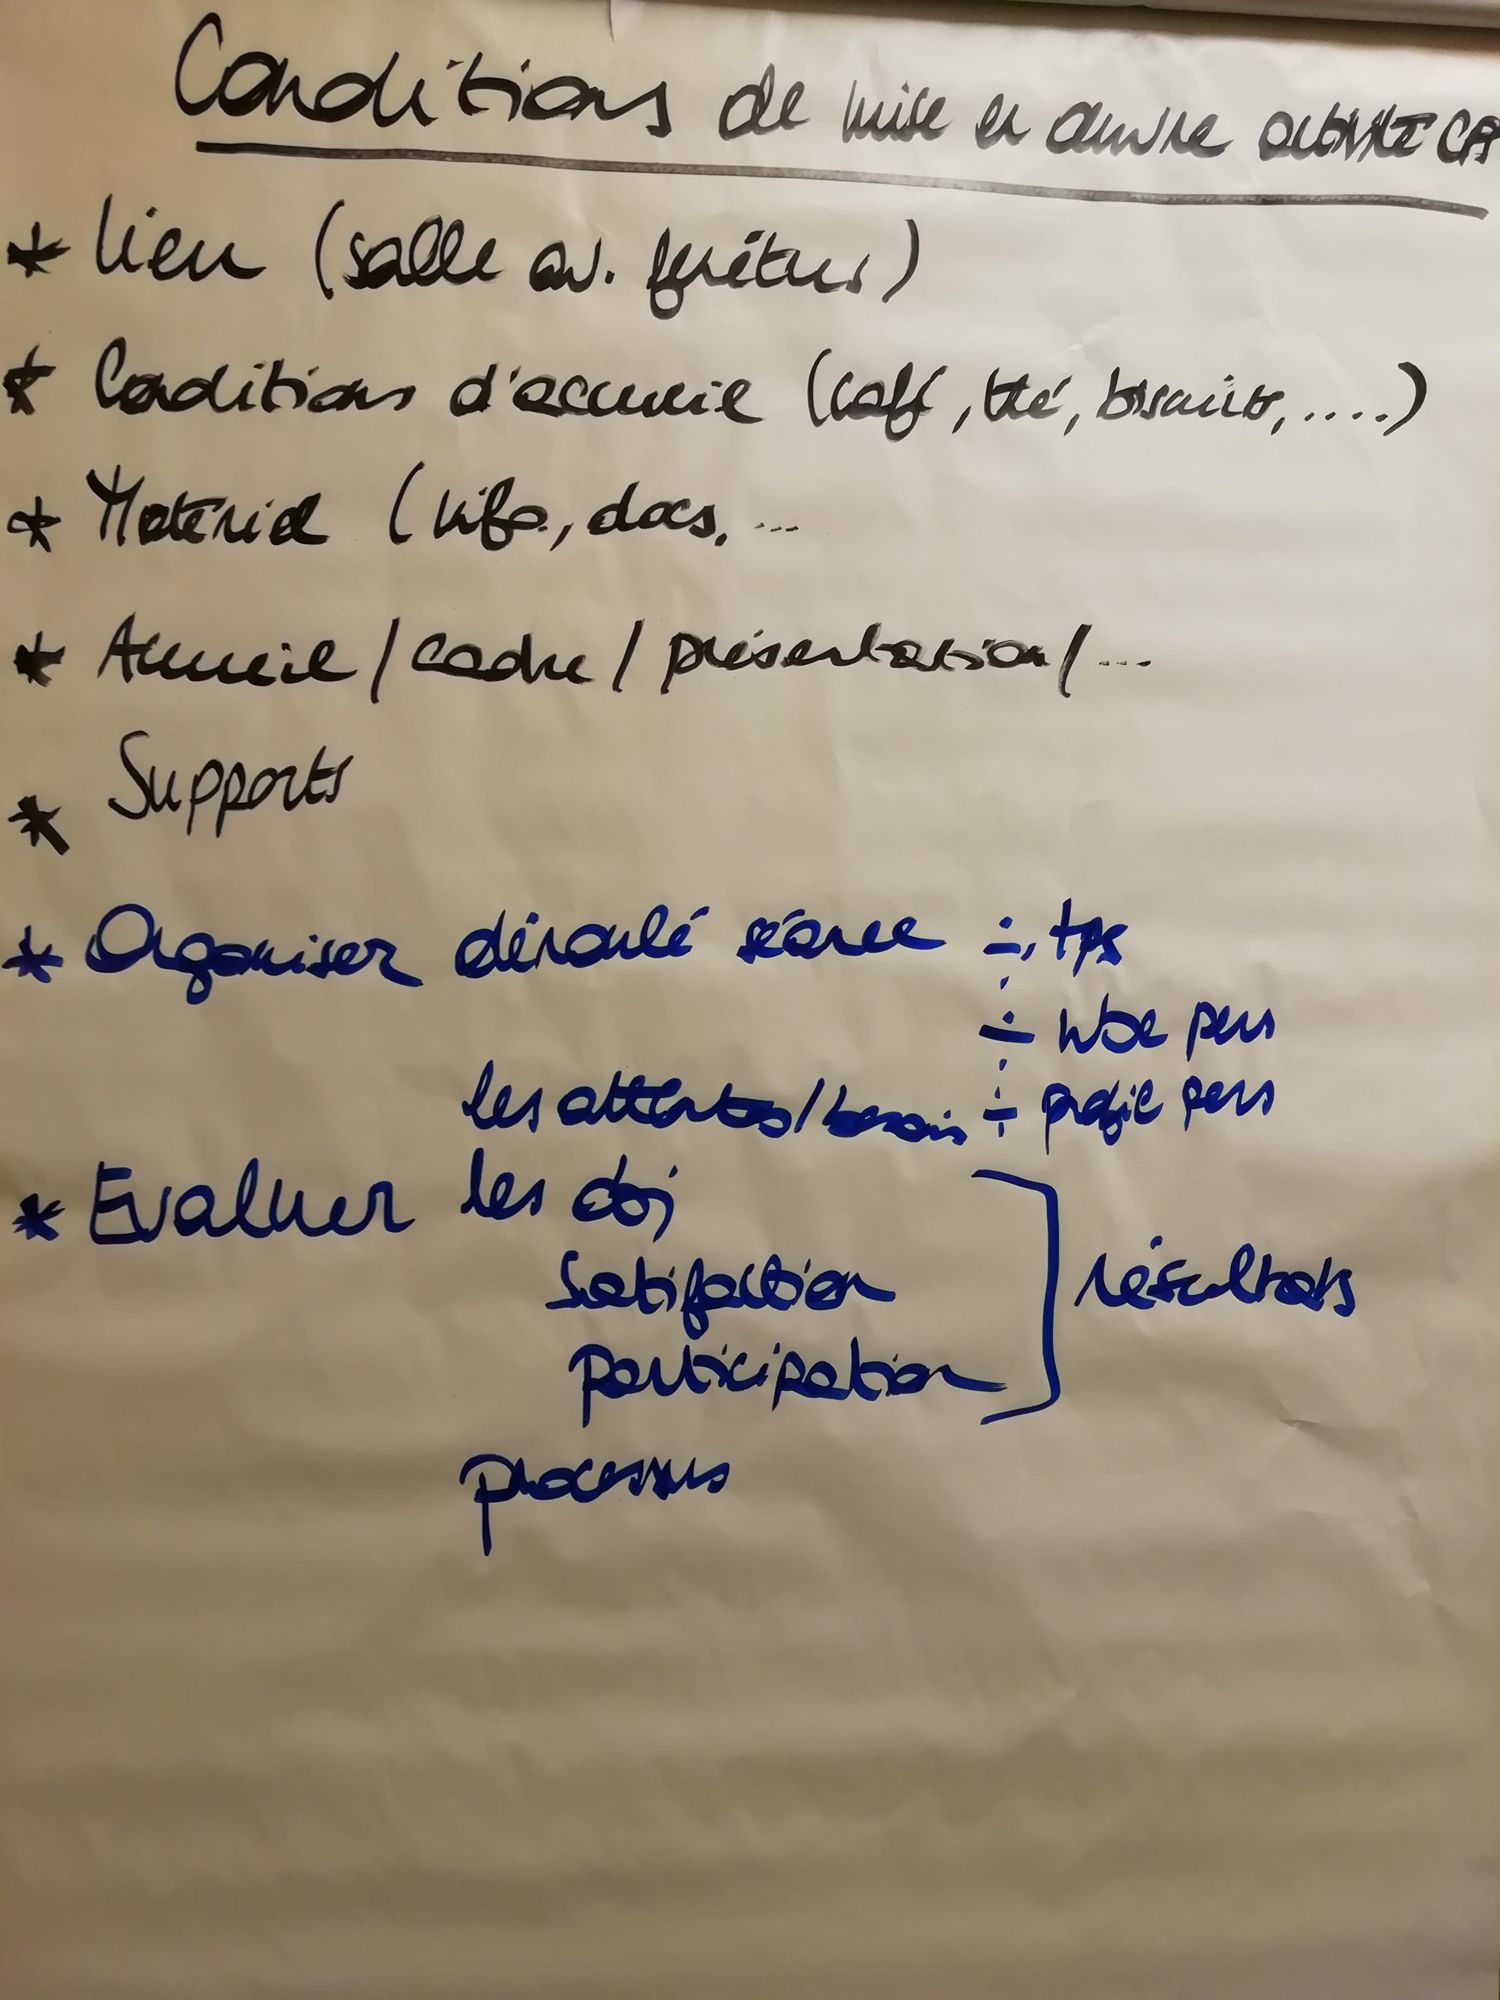 Conditions de mise en œuvre activité
* Lieu (salle av. fenêtres)
* Conditions d'accueil (café, thé, biscuits, ....)
* Matériel ( , docs, ...
* Accueil / cadre / présentation / ...
* Supports
* Organiser déroulé séance ÷ tps
÷ nbre pers
les attentes / besoins ÷ profil pers
* Evaluer les obj
Satisfaction
participation
résultats
processus